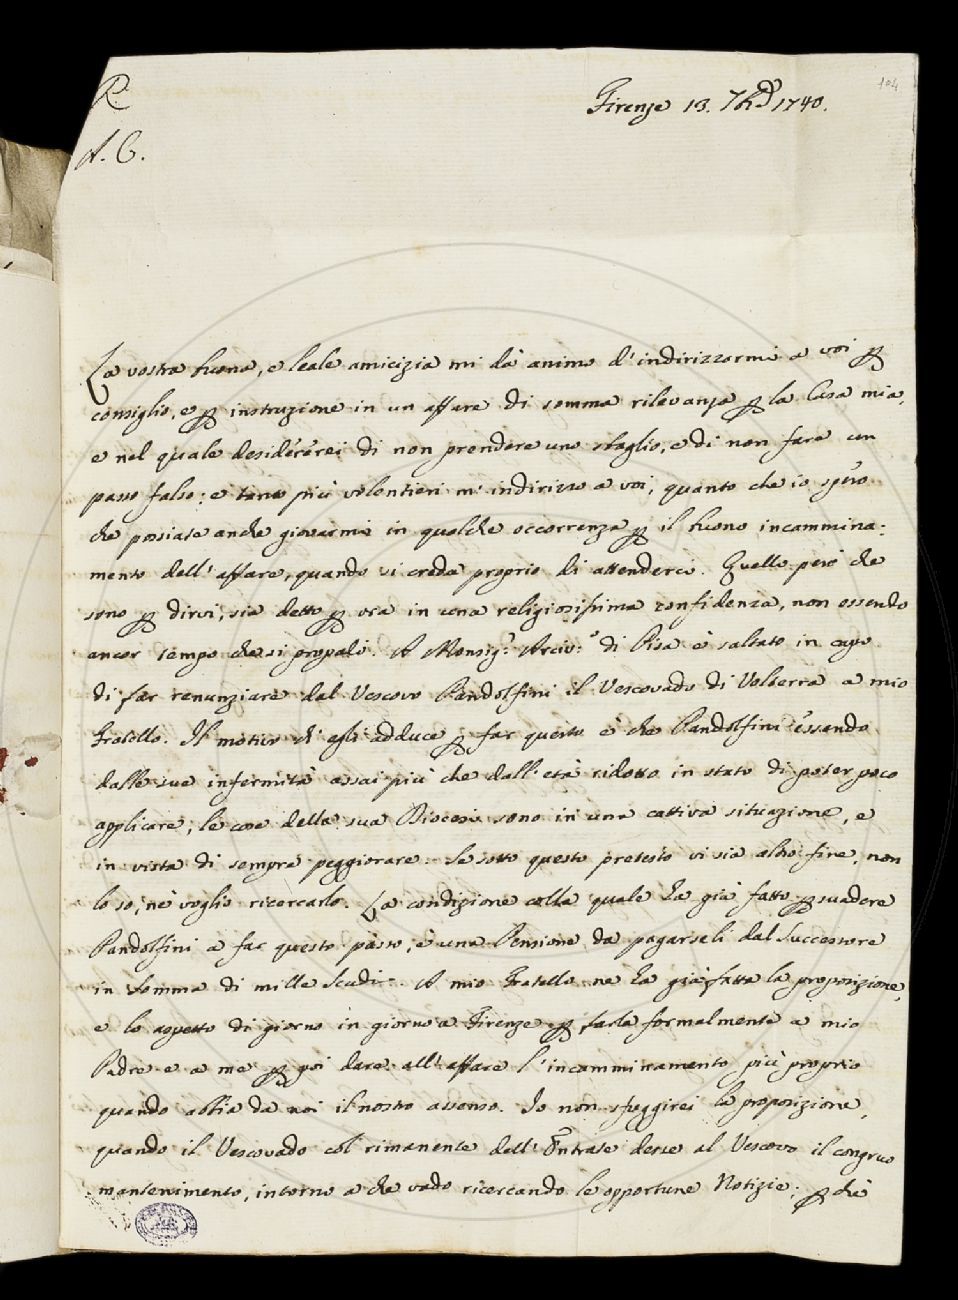 104
R.
Firenze 13. 7bre 1740.
A. C.
La vostra buona, e leale amicizia mi dà animo d'indirizzarmi a voi p
consiglio, e p instruzione in un affare di somma rilevanza p la Casa mia,
e nel quale desidererei di non prendere uno sbaglio, e di non fare un
passo falso; e tanto più volontieri m'indirizzo a voi, quanto che io spero
che possiate anche giovarmi in qualche occorrenza p il buono incammina-
mento dell'affare, quando vi creda proprio di attenderci. Quello però che
sono p dirvi, sia detto p ora in una religiosissima confidenza, non essendo
ancor tempo che si propali. A Monsig.r Arciv.o di Pisa è saltato in capo
di far renunziare dal Vescovo Pandolfini il Vescovado di Volterra a mio
Fratello. Il motivo ch'egli adduce p far questo è che Pandolfini essendo
dalle sue infermità assai più che dall'età ridotto in stato di poter poco
applicare, le cose della sua Diocesi sono in una cattiva situazione, e
in vista di sempre peggiorare. Se sotto questo pretesto vi sia altro fine, non
lo so, nè voglio ricercarlo. La condizione colla quale ha già fatto psuadere
Pandolfini a far questo passo, è una Pensione da pagarseli dal Successore
in somma di mille Scudi. A mio Fratello ne ha già fatta la proposizione,
e lo aspetto di giorno in giorno a Firenze p farla formalmente a mio
Padre e a me p poi dare all'affare l'incamminamento più proprio
quando abbia da noi il nostro assenso. Io non sfuggirei la proposizione,
quando il Vescovado col rimanente dell'Entrate desse al Vescovo il congruo
mantenimento, intorno a che vado ricercando le opportune Notizie; p chè